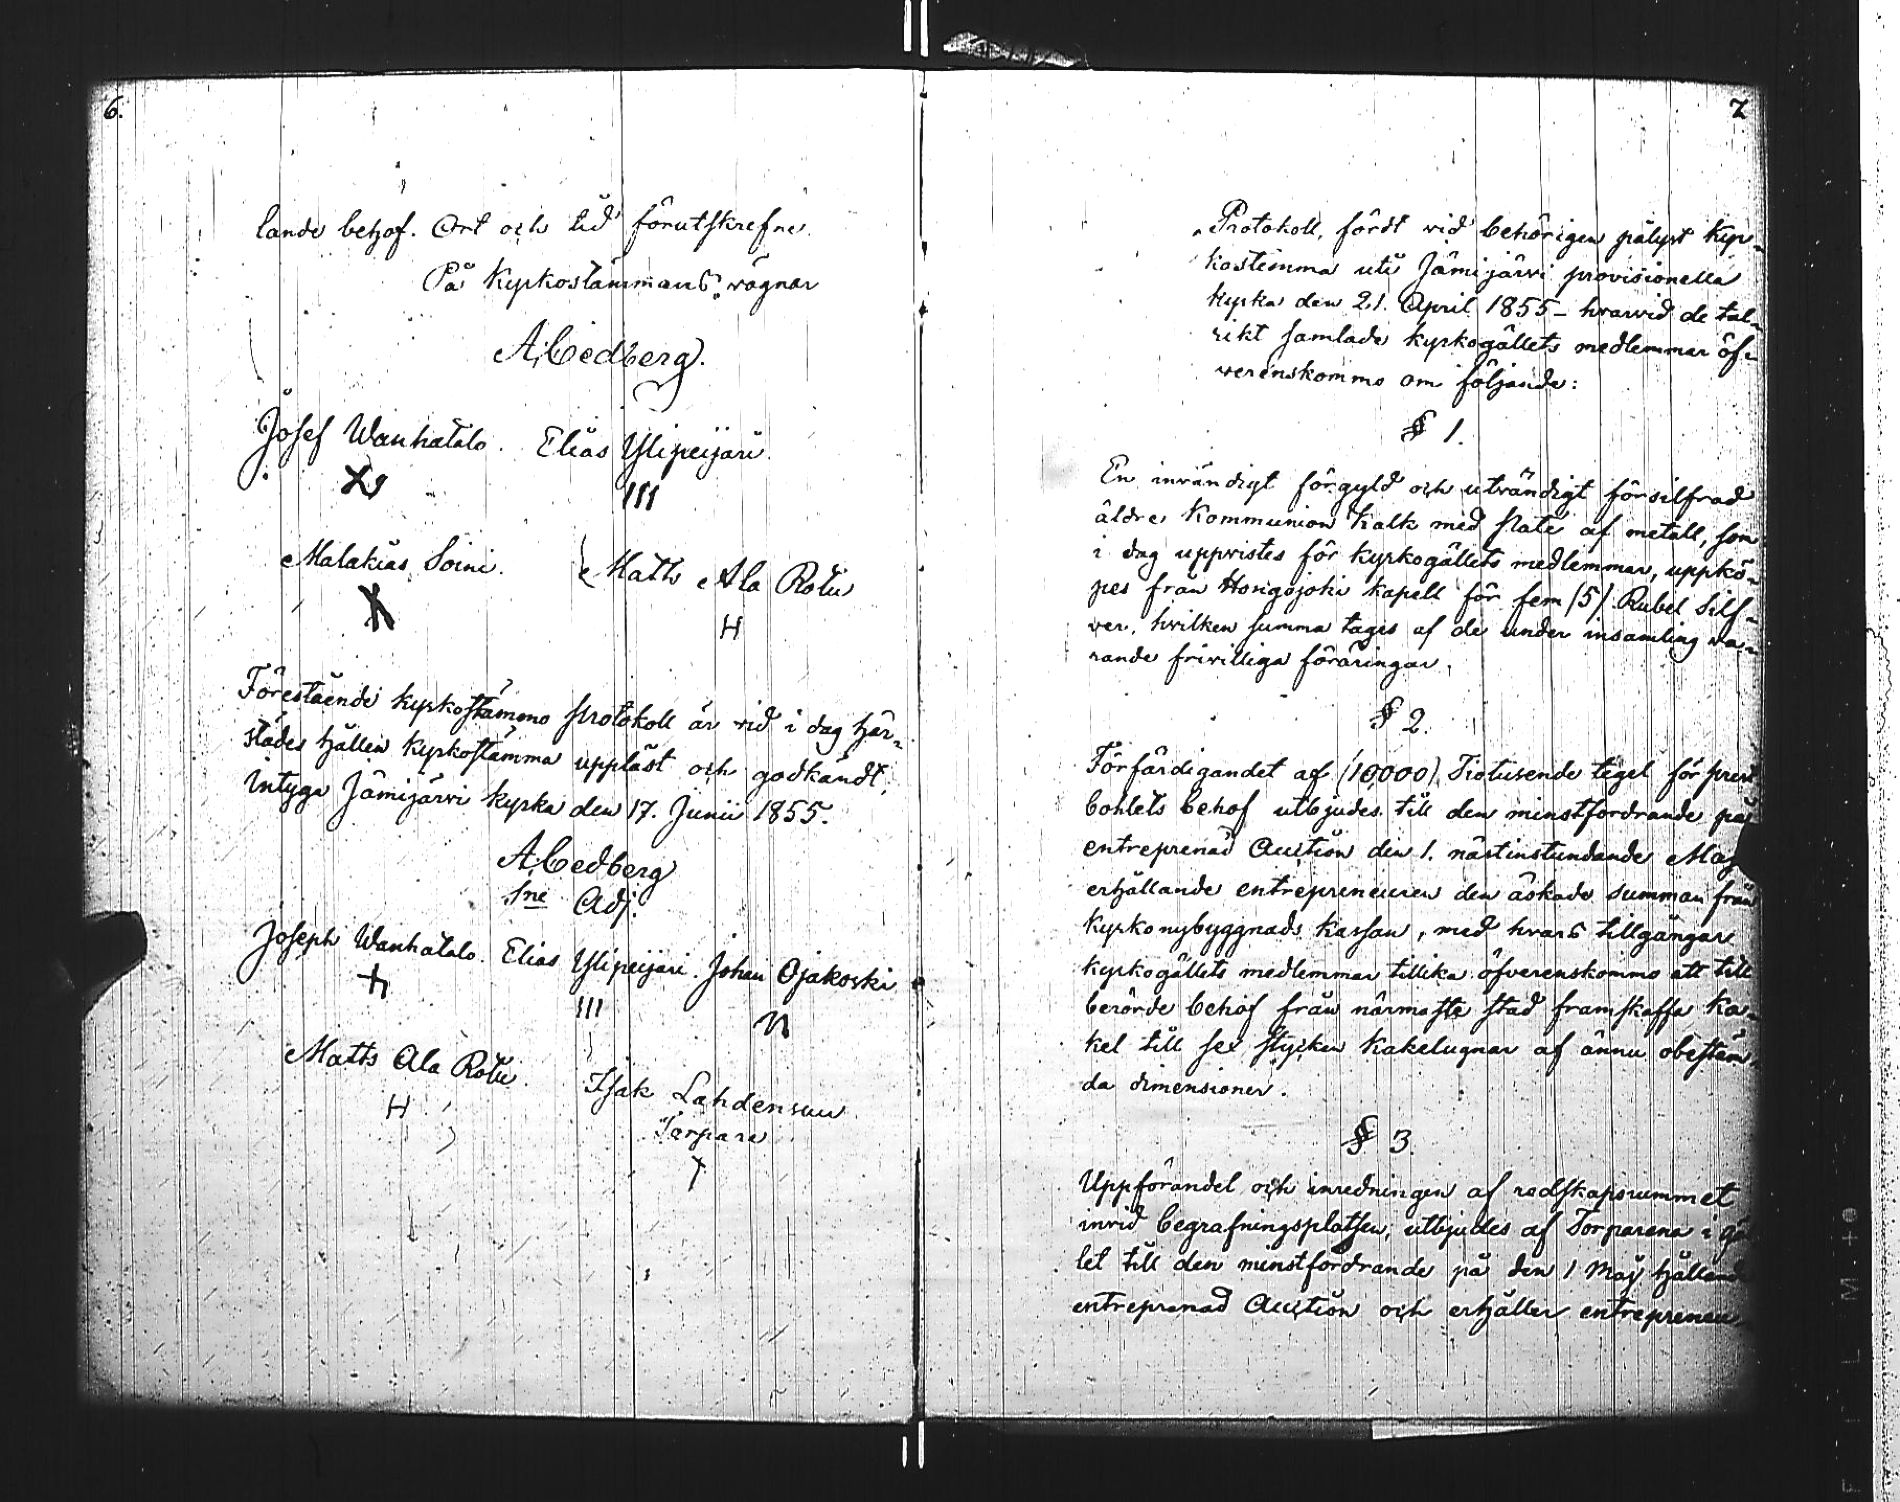 6.
lande behof. Ort och tid förutskrefne.
På Kyrkostämmans vägnar
A. Cedberg.
Josef Wanhatalo. Elias Ylipeijari.
X III
Malakias Soini. Matts Ala Rotu
X H
Förestående Kyrkostämmo protokoll är vid i dag här-
städes hållen Kyrkostämma uppläst och godkändt,
intyga Jämijärvi kyrka den 17. Junii 1855.
A. Cedberg
Sne Adj.
Joseph Wanhatalo. Elias Ylipeijari. Johan Ojakoski
III n
Matts Ala Rotu. Isak Lahdensuu
H Torpare
7
Protokoll, fördt vid behörigen pålyst Kyr-
kostämma uti Jämijärvi provisionella
kyrka den 21. April 1855 – hvarvid de tal-
rikt samlade kyrkogällets medlemmar öf-
verenskommo om följande:
§ 1.
En invändigt förgyld och utvändigt försilfrad
äldre Kommunion kalk med plate af metall, som
i dag uppvistes för kyrkogällets medlemmar, uppkö-
pes från Hongojoki kapell för fem (5) Rubel Silf-
ver, hvilken summa tages af de under insamling va-
rande frivilliga föräringar.
§ 2.
Förfärdigandet af (10,000) Tiotusende tegel för prest
bohlets behof utbjudes till den minstfordrande på
entreprenad Auction den 1. nästinstundande Maj
erhållande entrepreneuren den äskade summan från
kyrkonybyggnads kassan, med hvars tillgångar
kyrkogällets medlemmar tillika öfverenskommo att till
berörde behof från närmaste stad framskaffa Ka-
kel till sex stycken Kakelugnar af ännu obestäm-
da dimensioner.
§ 3.
Uppförandet och inredningen af redskapsrummet
invid begrafningsplatsen, utbjudes af Torparena i gäl
let till den minstfordrande på den 1 Maj hållande
entreprenad Auction och erhåller entrepreneu